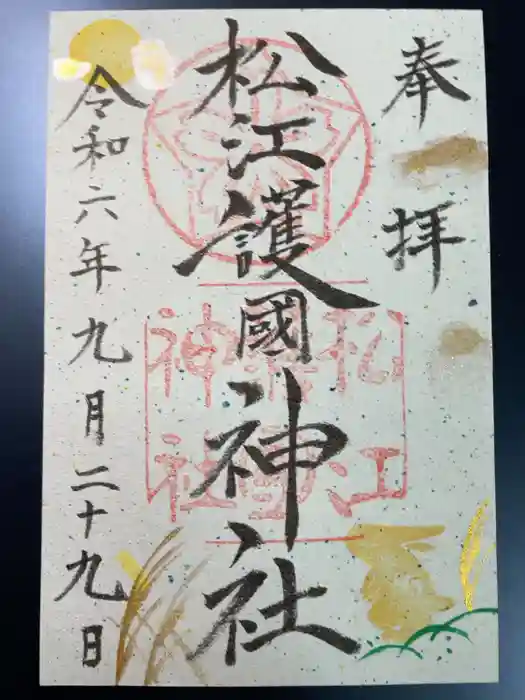 奉拝
松江護國神社
松江護國神社
令和六年九月二十九日